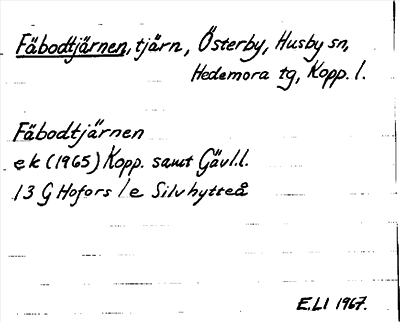 Fäbodtjärnen, tjärn, Österby, Husby sn,
Hedemora tg, Kopp. l.
Fäbodtjärnen
ek (1965) Kopp. samt Gävl.l.
13 G Hofors / e Silvhytteå
E.LI 1967.